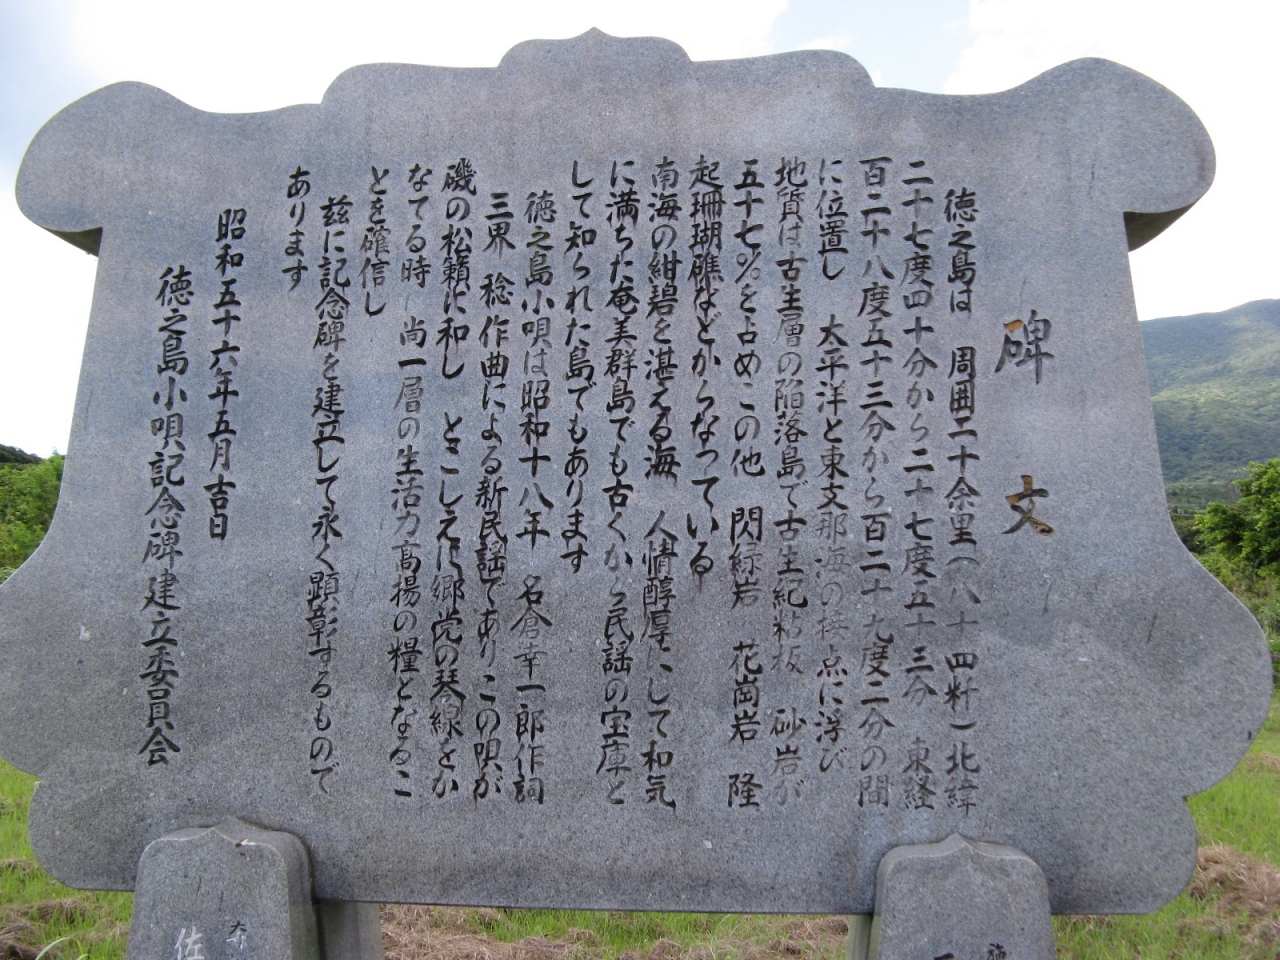 碑文
徳之島は 周囲二十余里(八十四粁)北緯
二十七度四十分から二十七度五十三分 東経
百二十八度五十三分から百二十九度二分の間
に位置し 太平洋と東支那海の接点に浮び
地質は古生層の陥落島で古生紀粘板 砂岩が
五十七%を占めこの他 閃緑岩 花崗岩 隆
起珊瑚礁などからなっている
南海の紺碧を湛える海 人情醇厚にして和気
に満ちた奄美群島でも古くから民謡の宝庫と
して知られた島でもあります
徳之島小唄は昭和十八年 名倉幸一郎作詞
三界 稔作曲による新民謡でありこの唄が
磯の松籟に和し とこしえに郷党の琴線をか
なでる時 尚一層の生活力高揚の糧となるこ
とを確信し
茲に記念碑を建立して永く顕彰するもので
あります
昭和五十六年五月吉日
徳之島小唄記念碑建立委員会
佐